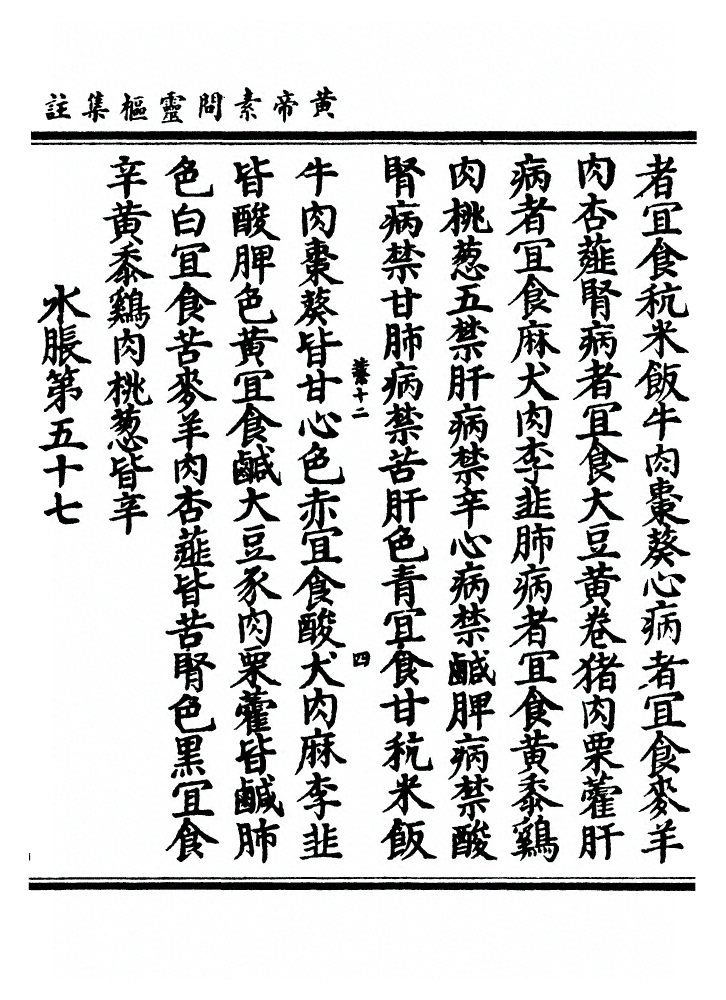 黃帝素問靈樞集註
者宜食秔米飯牛肉棗葵心病者宜食麥羊
肉杏薤腎病者宜食大豆黃卷猪肉栗藿肝
病者宜食麻犬肉李韭肺病者宜食黃黍鷄
肉桃葱五禁肝病禁辛心病禁鹹脾病禁酸
腎病禁甘肺病禁苦肝色青宜食甘秔米飯
卷十二
四
牛肉棗葵皆甘心色赤宜食酸犬肉麻李韭
皆酸脾色黃宜食鹹大豆豕肉栗藿皆鹹肺
色白宜食苦麥羊肉杏薤皆苦腎色黑宜食
辛黃黍鷄肉桃葱皆辛
水脹第五十七